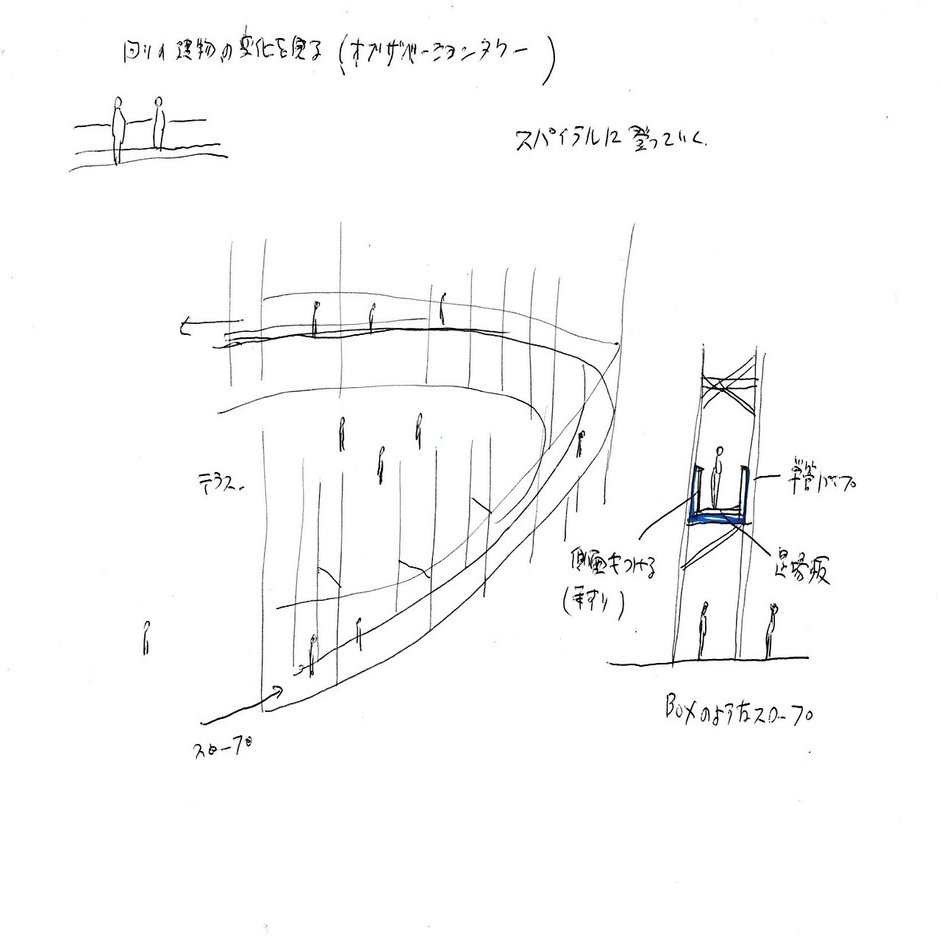 回りの建物の変化を見る (オブザベーションタワー)
スパイラルに登っていく.
テラス.
単管パイプ
側面をつける
(手すり)
足場板
BOXのようなスロープ
スロープ